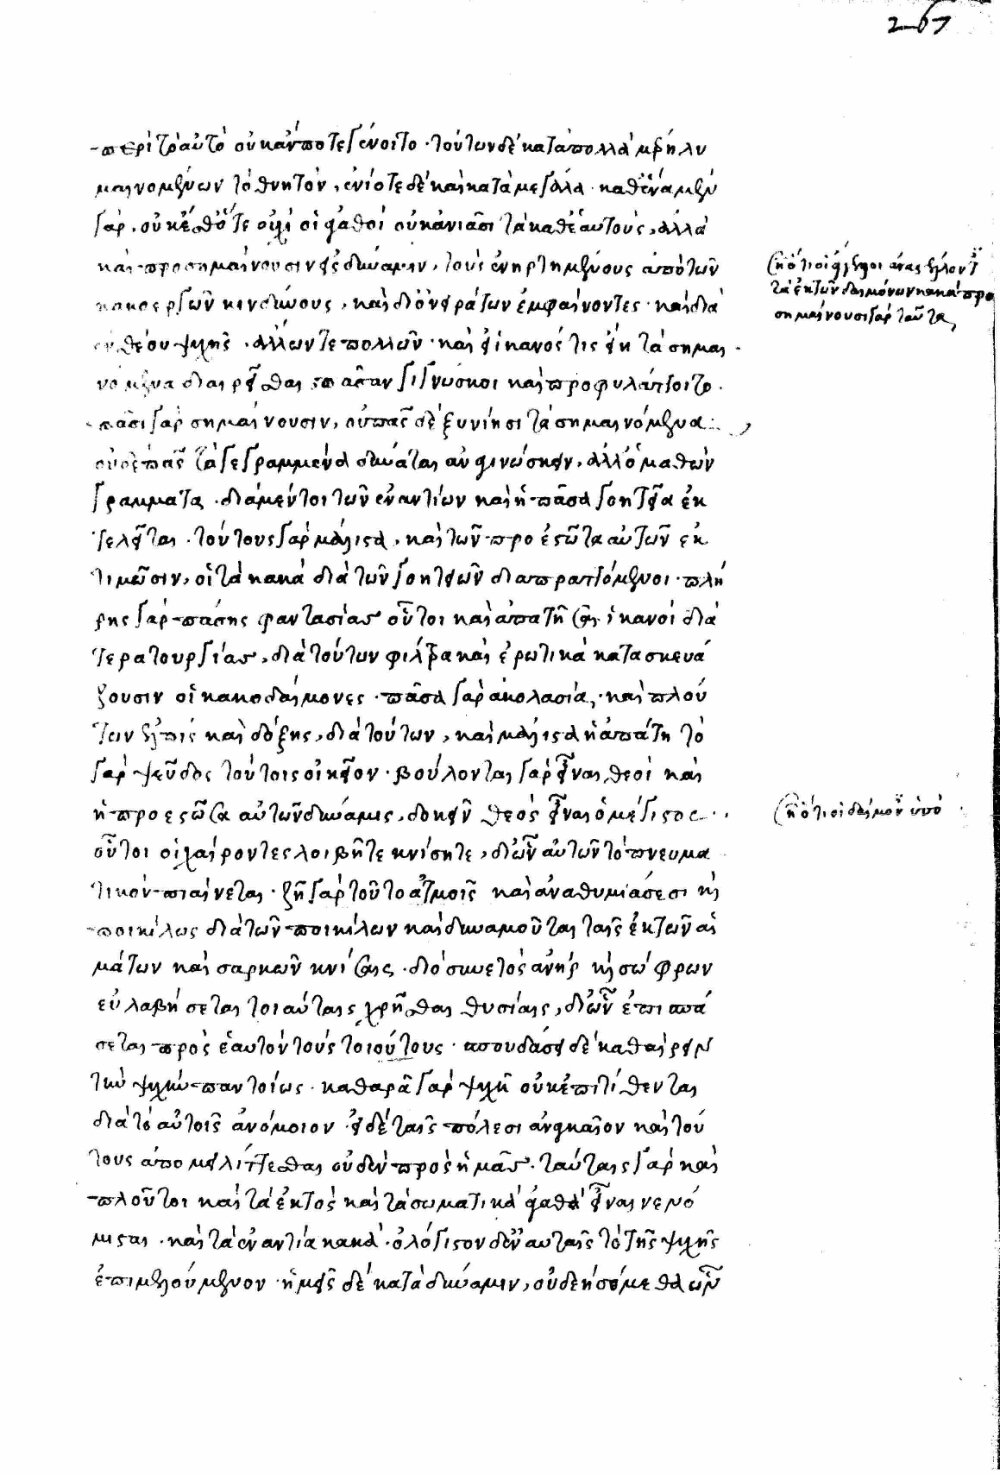 267
περὶ τὸ αὐτὸ οὐκ ἄν ποτε γένοιτο · τούτων δὲ κατὰ πολλὰ μὲν ἡ λυ
μαινομένων τὸ θνητὸν, ἐνίοτε δὲ καὶ κατὰ μεγάλα · καθ' ἕνα μὲν
γὰρ, οὐκ ἔσθ' ὅτε οὐχὶ οἱ ἀγαθοὶ οὐκ ἀνιᾶσι τὰ καθ' ἑαυτοὺς, ἀλλὰ
καὶ προσημαίνουσιν εἰς δύναμιν, τοὺς ἐνηρτημένους ἀπὸ τῶν
κακοεργῶν κινδύνους, καὶ δι' ὀνειράτων ἐμφαίνοντες · καὶ διὰ
ἐνθέου ψυχῆς · ἄλλων τε πολλῶν · καὶ εἰ ἱκανός τις εἴη τὰ σημαι
νόμενα διαιρεῖσθαι, πᾶς ἂν γιγνώσκοι καὶ προφυλάττοιτο ·
πᾶσι γὰρ σημαίνουσιν, οὐ πᾶς δὲ ξυνίησι τὰ σημαινόμενα
οὐδὲ πᾶς τὰ γεγραμμένα δύναται ἀναγινώσκειν, ἀλλ' ὁ μαθὼν
γράμματα · διὰ μέντοι τῶν ἐναντίων καὶ ἡ πᾶσα γοητεία ἐκ
τελεῖται · τούτους γὰρ μάλιστα, καὶ τὸν προεστῶτα αὐτῶν ἐκ
τιμῶσιν, οἱ τὰ κακὰ διὰ τῶν γοητειῶν διαπραττόμενοι · πλή
ρης γὰρ πάσης φαντασίας οὗτοι καὶ ἀπατῆσαι ἱκανοὶ διὰ
τερατουργίας, διὰ τούτων φίλτρα καὶ ἐρωτικὰ κατασκευά
ζουσιν οἱ κακοδαίμονες · πᾶσα γὰρ ἀκολασία, καὶ πλού
των ἐλπὶς καὶ δόξης, διὰ τούτων, καὶ μάλιστα ἡ ἀπάτη τὸ
γὰρ ψεῦδος τούτοις οἰκεῖον · βούλονται γὰρ εἶναι θεοὶ καὶ
ἡ προεστῶσα αὐτῶν δύναμις, δοκεῖν θεὸς εἶναι ὁ μέγιστος ·
οὗτοι οἱ χαίροντες λοιβῆτε κνίσητε, δι' ὧν αὐτῶν τὸ πνευμα
τικὸν πιαίνεται · ζῇ γὰρ τοῦτο ἀτμοῖς καὶ ἀναθυμιάσεσι καὶ
ποικίλως διὰ τῶν ποικίλων καὶ δυναμοῦται ταῖς ἐκ τῶν αἱ
μάτων καὶ σαρκῶν κνίσαις · διὸ συνετὸς ἀνὴρ καὶ σώφρων
εὐλαβήσεται τοιαύταις χρῆσθαι θυσίαις, δι' ὧν ἐπισπά
σεται πρὸς ἑαυτὸν τοὺς τοιούτους · σπουδάσει δὲ καθαίρειν
τὴν ψυχὴν παντοίως · καθαρᾷ γὰρ ψυχῇ οὐκ ἐπιτίθενται
διὰ τὸ αὐτοῖς ἀνόμοιον · εἰ δὲ ταῖς πόλεσι ἀναγκαῖον καὶ τού
τους ἀπομειλίττεσθαι οὐδὲν πρὸς ἡμᾶς · ταύταις γὰρ καὶ
πλοῦτοι καὶ τὰ ἐκτὸς καὶ τὰ σωματικὰ ἀγαθὰ εἶναι νενό
μισται · καὶ τὰ ἐναντία κακά · ὀλόγιστον δ' ἐν αὐταῖς τὸ τῆς ψυχῆς
ἐπιμελούμενον · ἡμεῖς δὲ κατὰ δύναμιν, οὐ δεησόμεθα ὧν
τὰ ἐκ τῶν δαιμόνων κακά· προ
σημαίνουσι γὰρ ταῦτα,
ὅτι οἱ δαίμον ὑπὸ